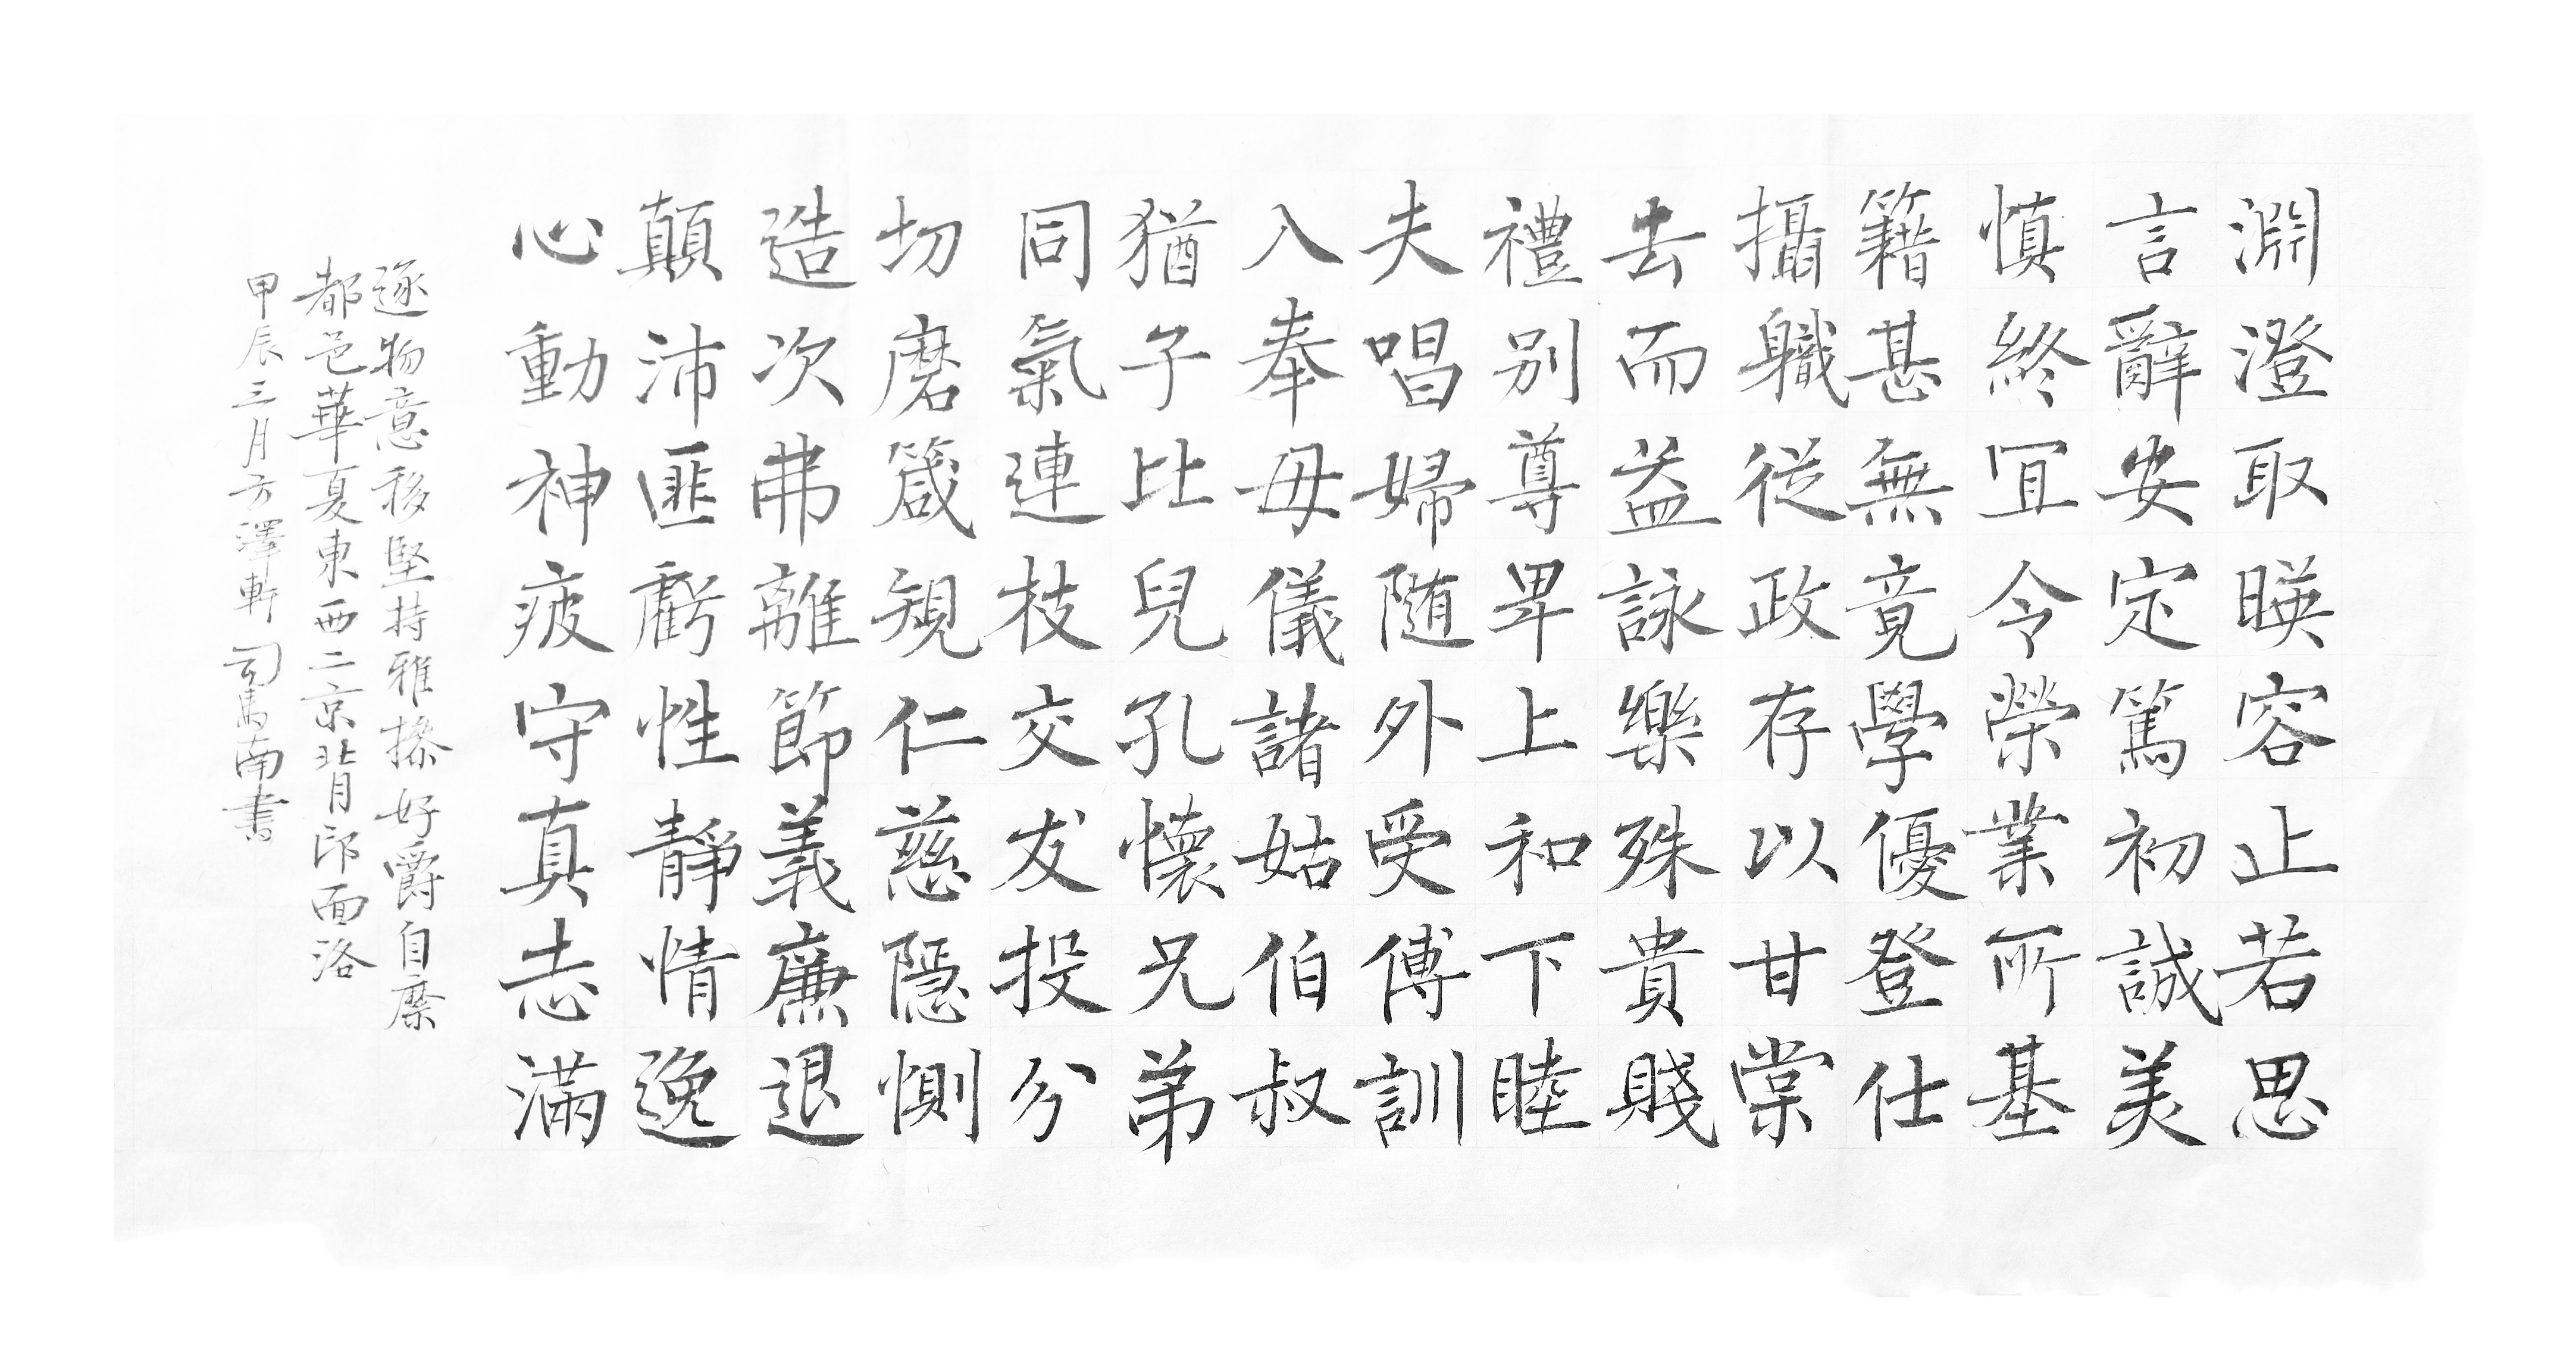 淵澄取暎容止若思
言辭安定篤初誠美
慎終宜令榮業所基
籍甚無竟學優登仕
攝職從政存以甘棠
去而益詠樂殊貴賤
禮別尊卑上和下睦
夫唱婦隨外受傅訓
入奉母儀諸姑伯叔
猶子比兒孔懷兄弟
同氣連枝交友投分
切磨箴規仁慈隱惻
造次弗離節義廉退
顛沛匪虧性靜情逸
心動神疲守真志滿
逐物意移堅持雅操好爵自縻
都邑華夏東西二京背邙面洛
甲辰三月方澤軒司馬南書